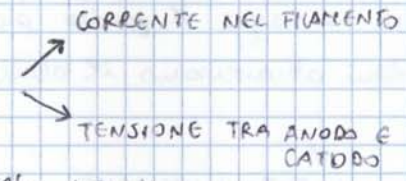 CORRENTE NEL FILAMENTO
TENSIONE TRA ANODO E
CATODO